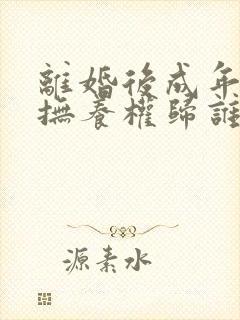 離婚後成年
撫養權歸誰
源素水